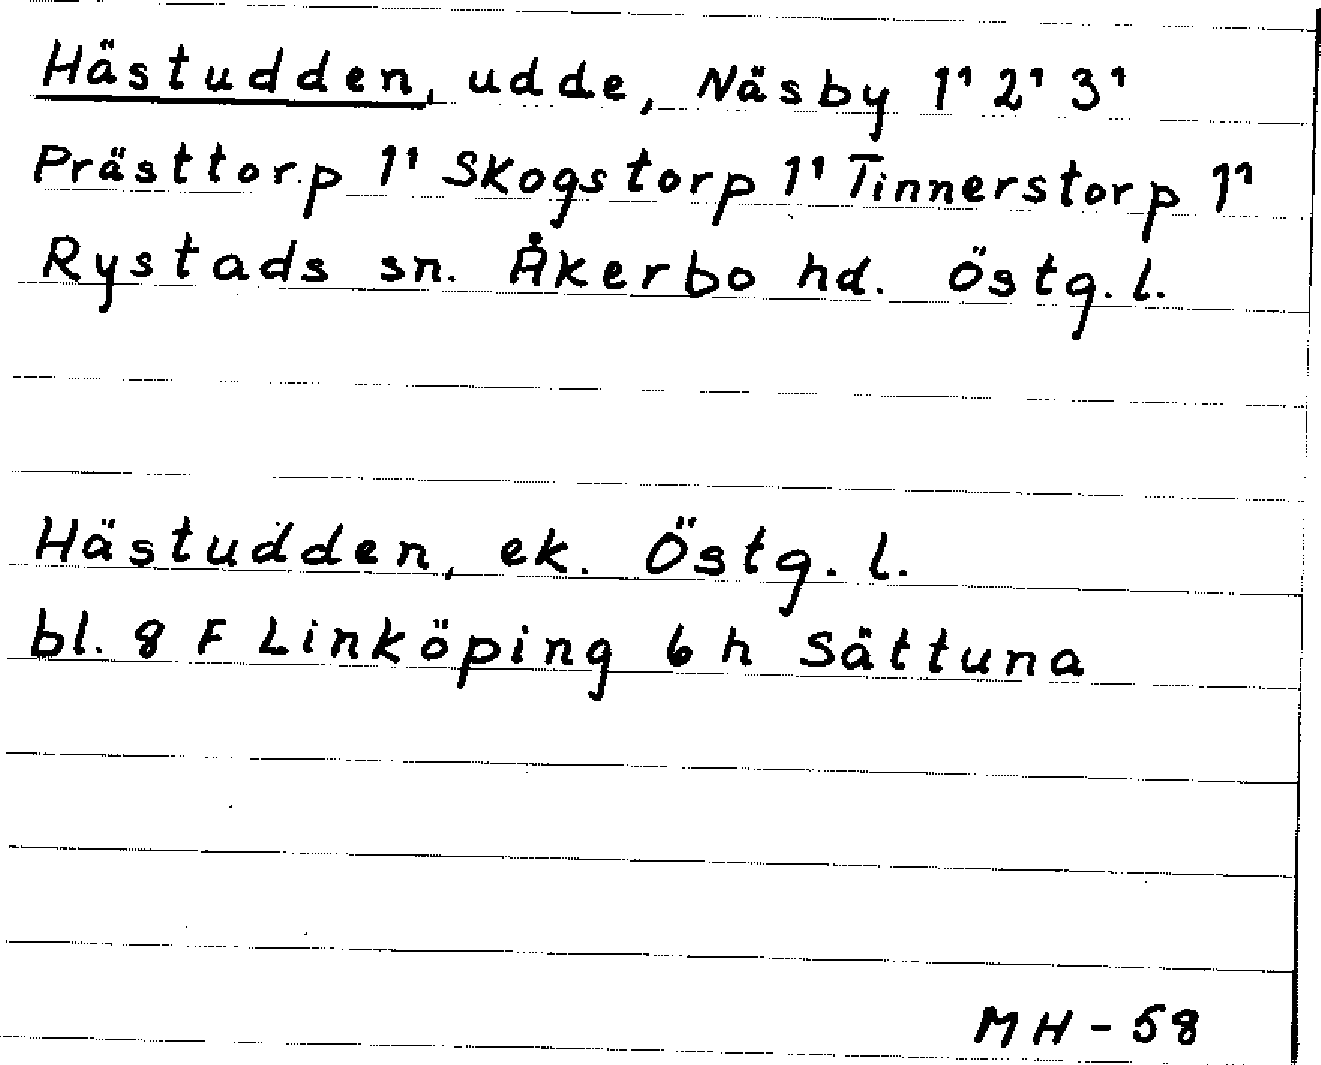 Hästudden, udde, Näsby 1¹ 2¹ 3¹
Prästtorp 1¹ Skogstorp 1¹ Tinnerstorp 1¹
Rystads sn. Åkerbo hd. Östg. l.
Hästudden, ek. Östg. l.
bl. 8 F Linköping 6 h Sättuna
MH-58